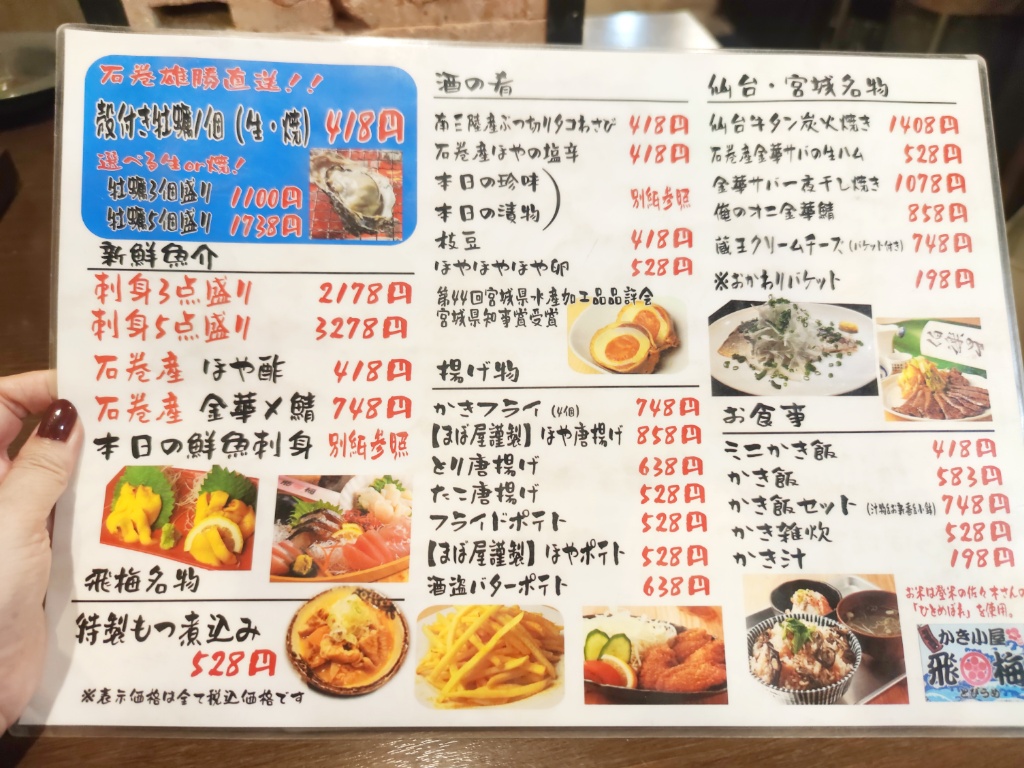 石巻雄勝直送!!
殻付き牡蠣1個(生・焼) 418円
選べる生or焼!
牡蠣3個盛り 1100円
牡蠣5個盛り 1738円
新鮮魚介
刺身3点盛り 2178円
刺身5点盛り 3278円
石巻産 ほや酢 418円
石巻産 金華〆鯖 748円
本日の鮮魚刺身 別紙参照
飛梅名物
特製もつ煮込み
528円
※表示価格は全て税込価格です
酒の肴
南三陸産ぶつ切りタコわさび 418円
石巻産ほやの塩辛 418円
本日の珍味
本日の漬物
別紙参照
枝豆 418円
ほやほやほや卵 528円
第44回宮城県水産加工品品評会
宮城県知事賞受賞
揚げ物
かきフライ(4個) 748円
【まぼ屋謹製】ほや唐揚げ 858円
とり唐揚げ 638円
たこ唐揚げ 528円
フライドポテト 528円
【まぼ屋謹製】ほやポテト 528円
酒盗バターポテト 638円
仙台・宮城名物
仙台牛タン炭火焼き 1408円
石巻産金華サバの生ハム 528円
金華サバ一夜干し焼き 1078円
俺のオニ金華鯖 858円
蔵王クリームチーズ(バケット付き) 748円
※おかわりバケット 198円
お食事
ミニかき飯 418円
かき飯 583円
かき飯セット 748円
かき雑炊 528円
かき汁 198円
お米は登米の佐々木さんの
「ひとめぼれ」を使用。
かき小屋
飛梅
とびうめ